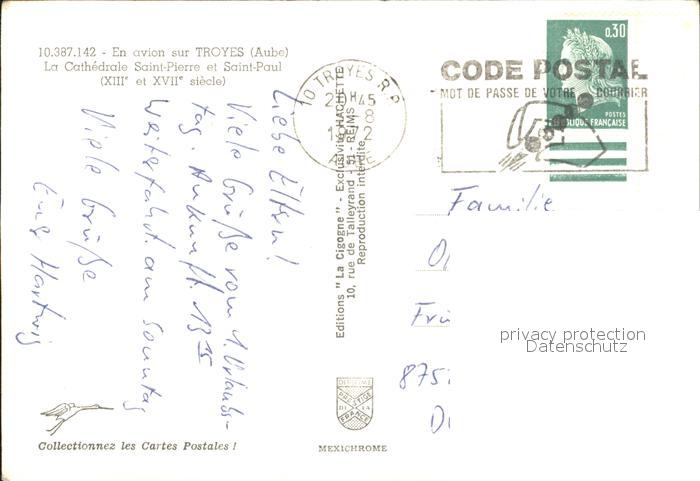 10.387.142 - En avion sur TROYES (Aube)
La Cathédrale Saint-Pierre et Saint-Paul
(XIIIe et XVIIe siècle)
Liebe Eltern!
Viele Grüße vom 1. Urlaubs-
tag. Ankunft 13 15
Weiterfahrt am Sonntag
Viele Grüße
Euer Hartwig
Collectionnez les Cartes Postales !
Editions "La Cigogne" - Exclusivité HACHETTE
10, rue de Talleyrand - 51 - REIMS
Reproduction interdite
DIPLOME
PRESTIGE
DE LA
FRANCE
MEXICHROME
10 TROYES R.P.
H 45
8
AUBE
CODE POSTAL
MOT DE PASSE DE VOTRE COURRIER
0,30
POSTES
REPUBLIQUE FRANÇAISE
Familie
875
privacy protection
Datenschutz